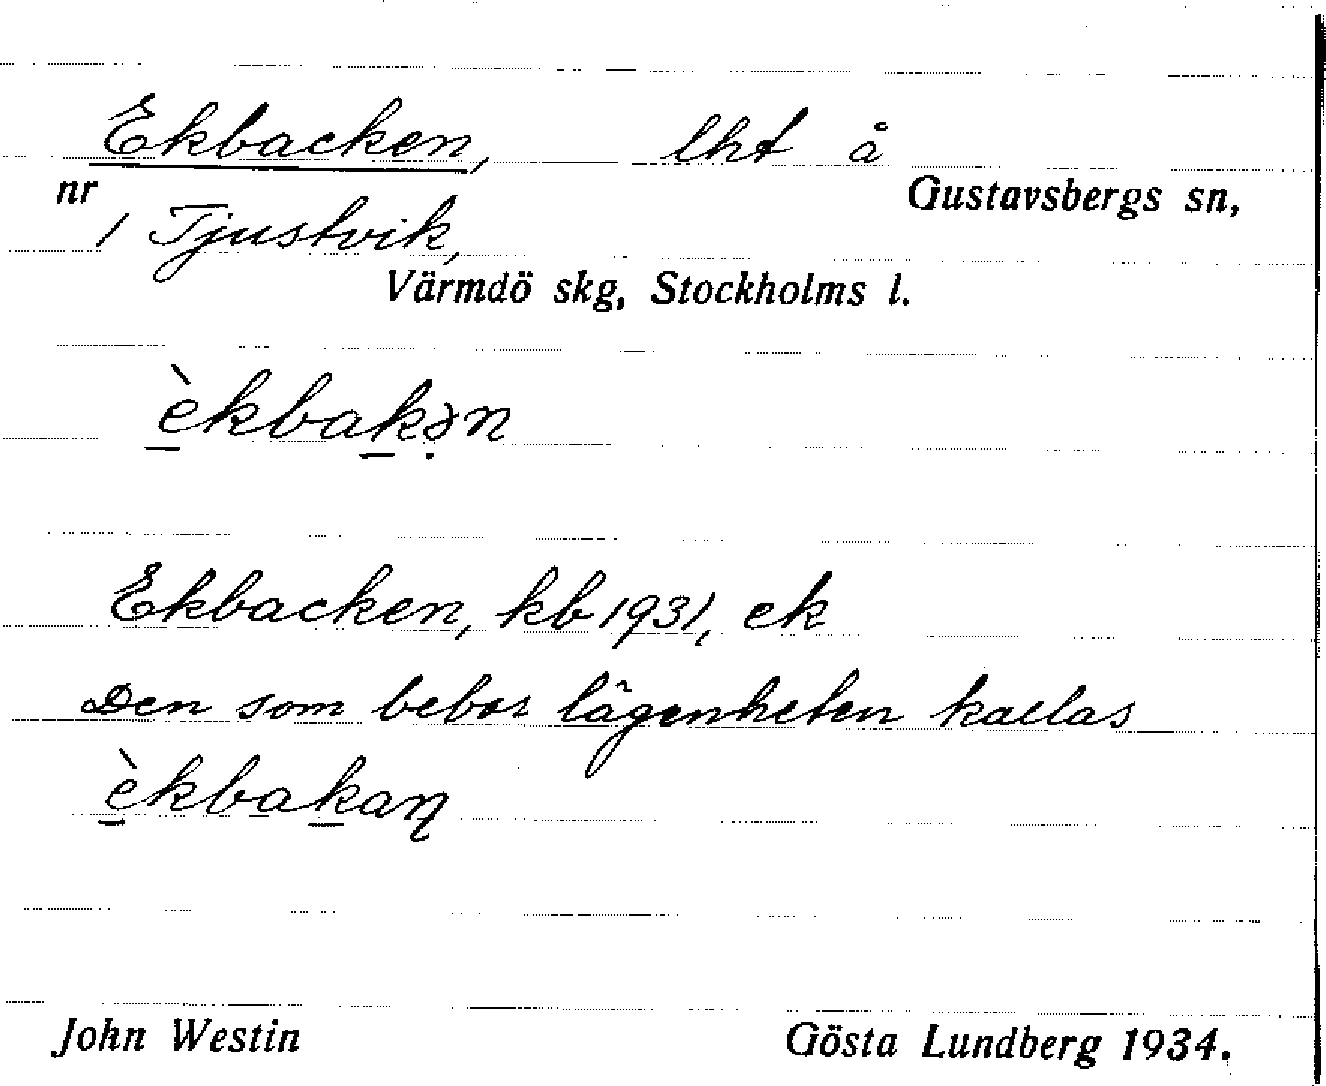 Ekbacken, lht å
nr Gustavsbergs sn,
1 Tjustvik,
Värmdö skg, Stockholms l.
èkbakən
Ekbacken, kb 1931, ek
Den som bebor lägenheten kallas
èkbakaɳ
John Westin Gösta Lundberg 1934.